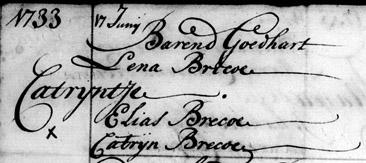 1733 17 Junij
Barend Goedhart
Lena Brecoe
Catryntje
x Elias Brecoe
Catryn Brecoe